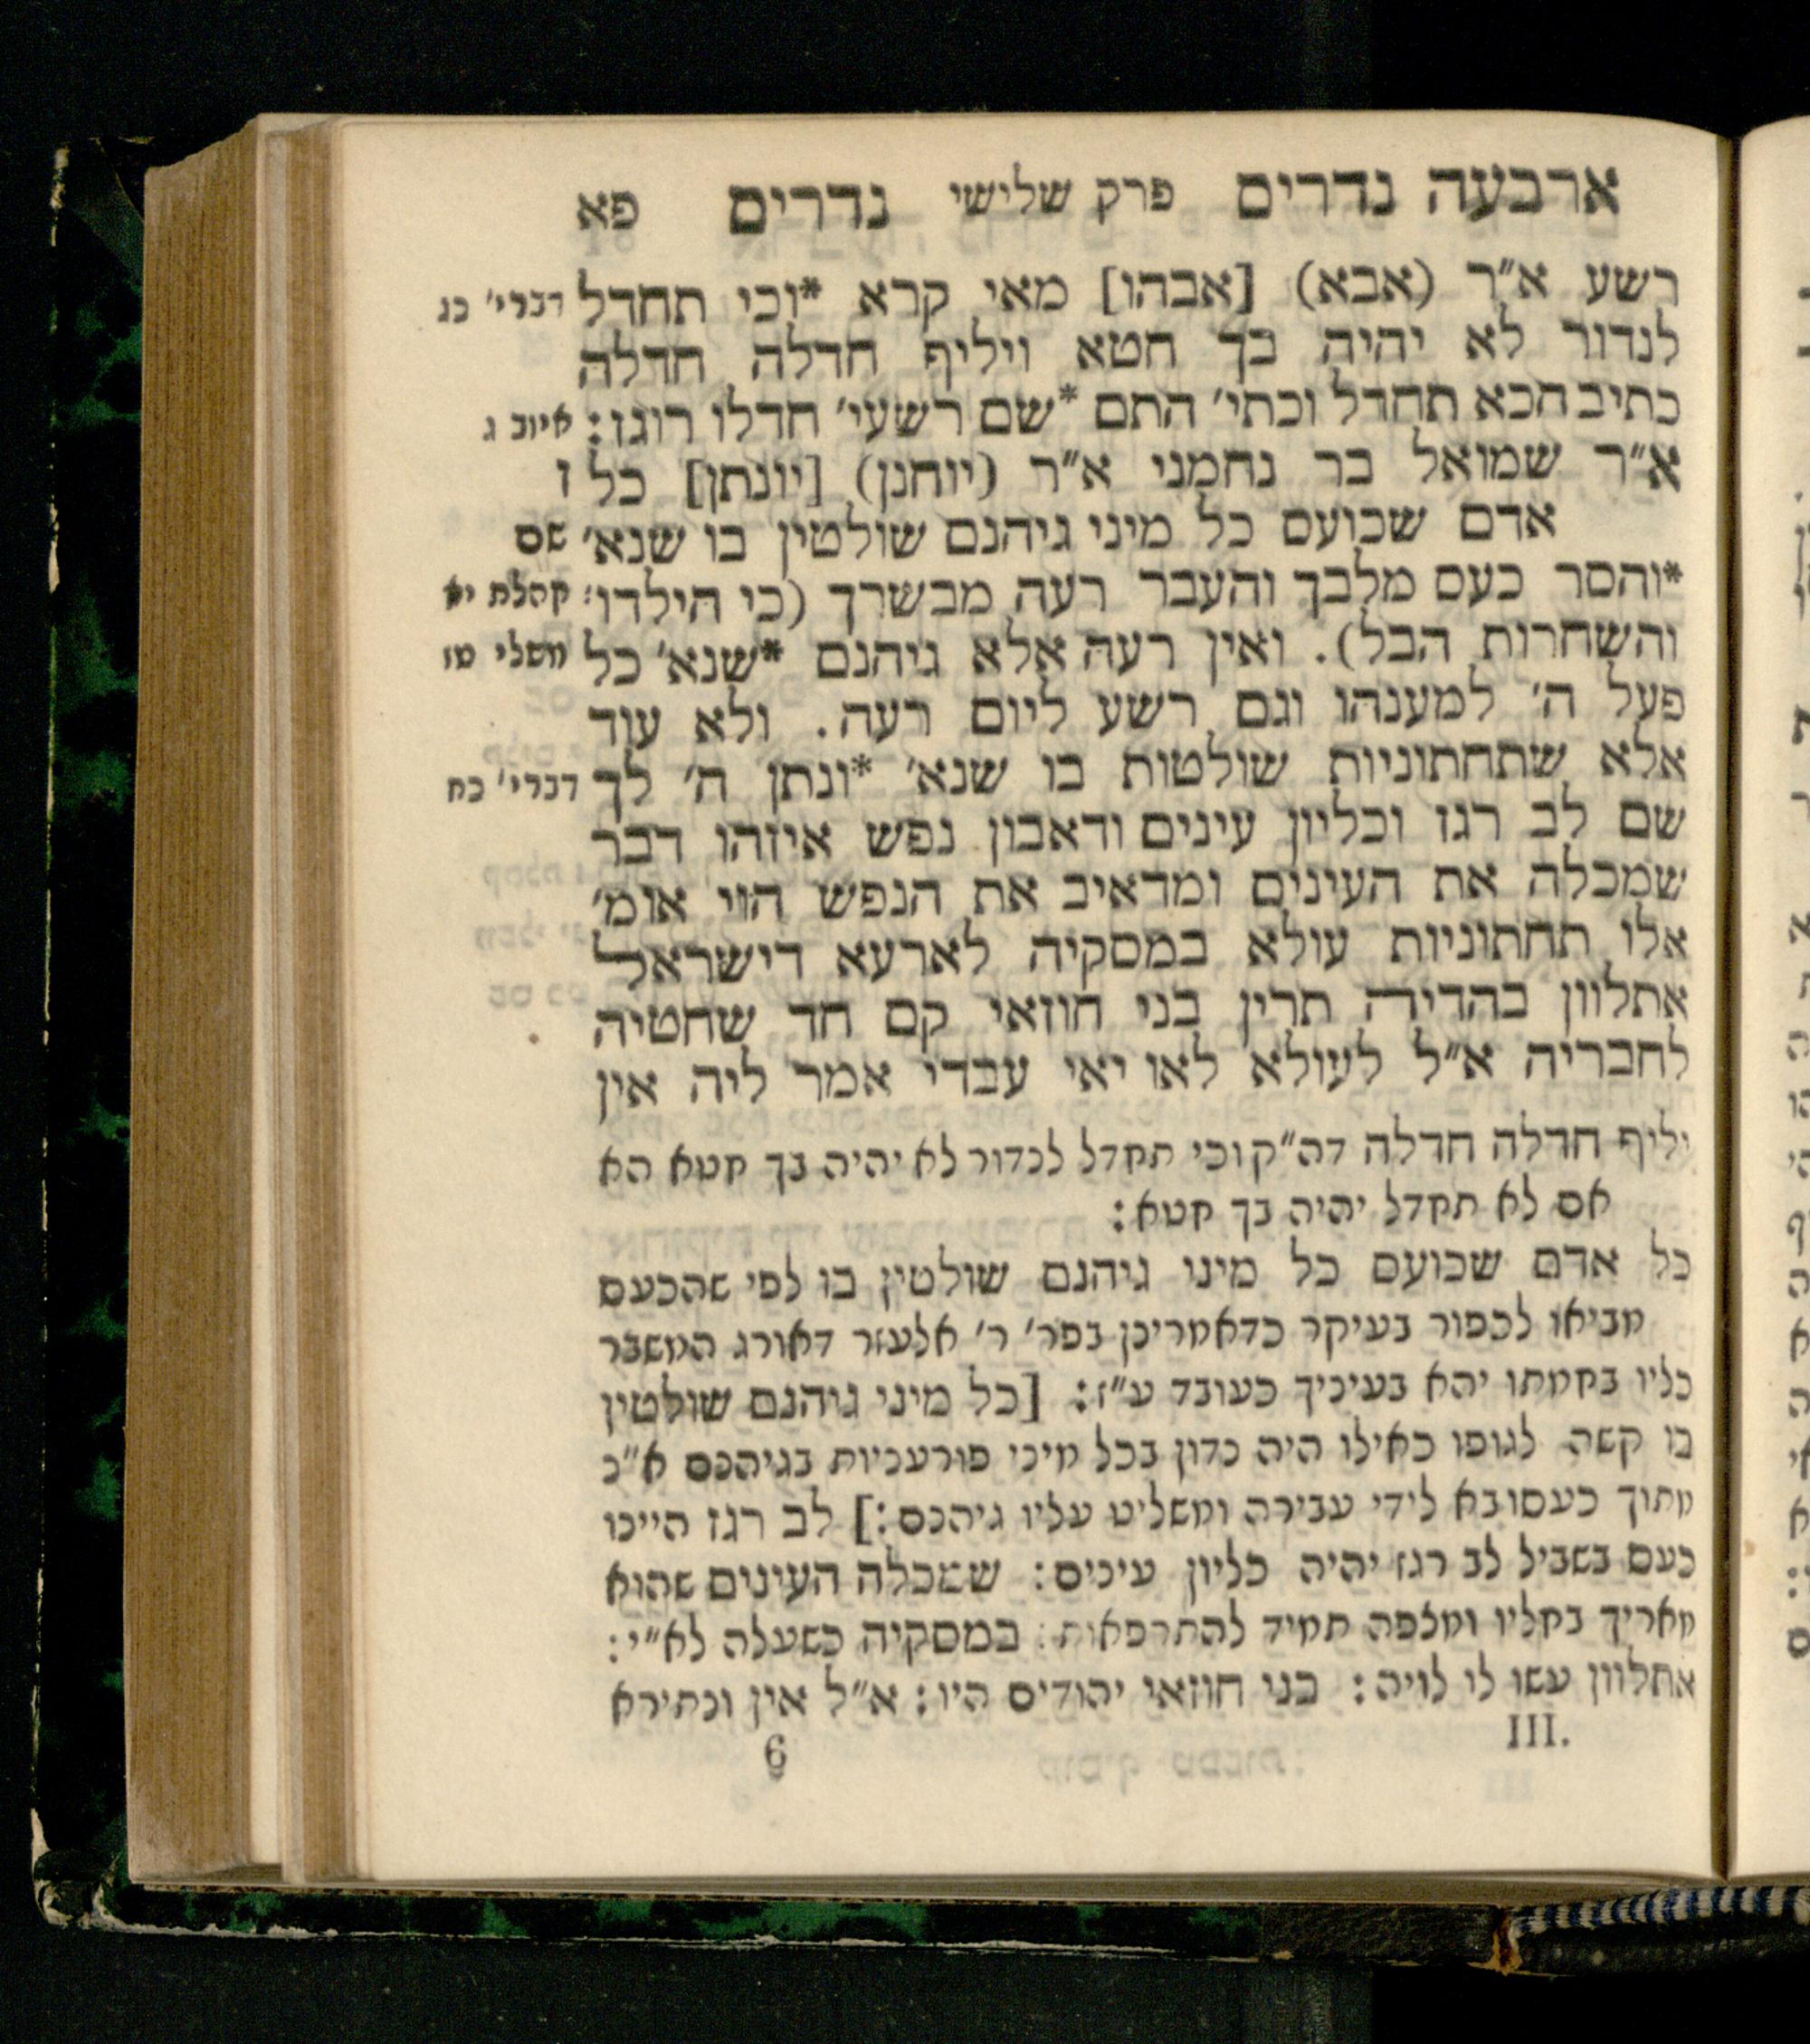 ארבעה נדרים פרק שלישי נדרים פא
רשע א״ר (אבא) [אבהו] מאי קרא *וכי תחדל דברי׳ כג
לנדור לא יהיה בך חטא ויליף חדלה חדלה
כתיב הכא תחדל וכתי׳ התם *שם רשעי׳ חדלו רוגז: איוב ג
א״ר שמואל בר נחמני א״ר (יוחנן) [יונתן] כל ז
אדם שכועס כל מיני גיהנם שולטין בו שנא׳ שם
*והסר כעס מלבך והעבר רעה מבשרך (כי הילדו׳ קהלת יא
והשחרות הבל). ואין רעה אלא גיהנם *שנא׳ כל משלי טז
פעל ה׳ למענהו וגם רשע ליום רעה. ולא עוד
אלא שתחתוניות שולטות בו שנא׳ *ונתן ה׳ לך דברי׳ כח
שם לב רגז וכליון עינים ודאבון נפש איזהו דבר
שמכלה את העינים ומדאיב את הנפש הוי אומ׳
אלו תחתוניות עולא במסקיה לארעא דישראל
אתלוון בהדיה תרין בני חוזאי קם חד שחטיה
לחבריה א״ל לעולא לאו יאי עבדי אמר ליה אין
יליף חדלה חדלה דה״ק וכי תחדל לנדור לא יהיה בך חטא הא
אם לא תחדל יהיה בך חטא:
כל אדם שכועס כל מיני גיהנם שולטין בו לפי שהכעס
מביאו לכפור בעיקר כדאמרינן בפר׳ ר׳ אלעזר דאורג המשבר
כליו בחמתו יהא בעיניך כעובד ע״ז: [כל מיני גיהנם שולטין
בו קשה לגופו כאילו היה נדון בכל מיני פורעניות בגיהנם א״נ
מתוך כעסו בא לידי עבירה ומשליט עליו גיהנם:] לב רגז היינו
כעס בשביל לב רגז יהיה כליון עינים: שמכלה העינים שהוא
מאריך בחליו ומלפה תמיד להתרפאות: במסקיה כשעלה לא״י:
אתלוון עשו לו לויה: בני חוזאי יהודים היו: א״ל אין ונתירא
III. 6